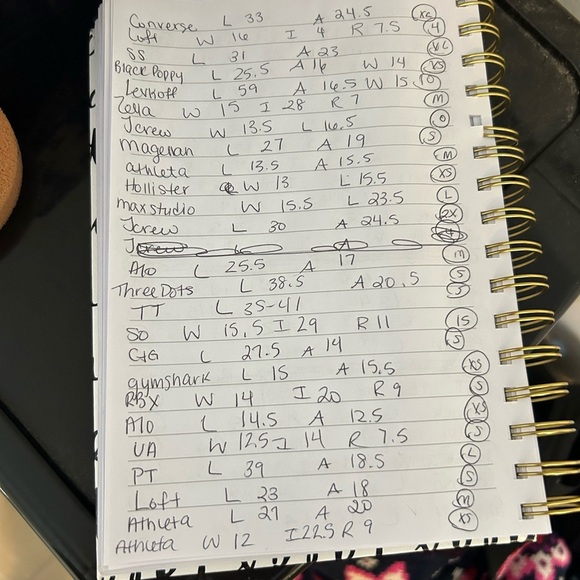 Converse L 33 A 24.5 XS
Loft W 16 I 4 R 7.5 4
SS L 31 A 23
Black Poppy L 25.5 A 16 W 14 XS
L 59 A 16.5 W 15
Zella W 15 I 28 R 7 M
Jcrew W 13.5 L 16.5 0
L 27 A 19 S
athleta L 13.5 A 15.5 M
Hollister W 13 L 15.5 XS
max studio W 15.5 L 23.5 L
Jcrew L 30 A 24.5 2X
Alo L 25.5 A 17 M
Three Dots L 38.5 A 20.5 S
TT L 35-41 S
So W 15.5 I 29 R 11 15
L 27.5 A 14 S
gymshark L 15 A 15.5 XS
RBX W 14 I 20 R 9 S
Alo L 14.5 A 12.5 XS
UA W 12.5 I 14 R 7.5 S
PT L 39 A 18.5 L
Loft L 23 A 18 S
Athleta L 27 A 20 M
Athleta W 12 I 22.5 R 9 XS